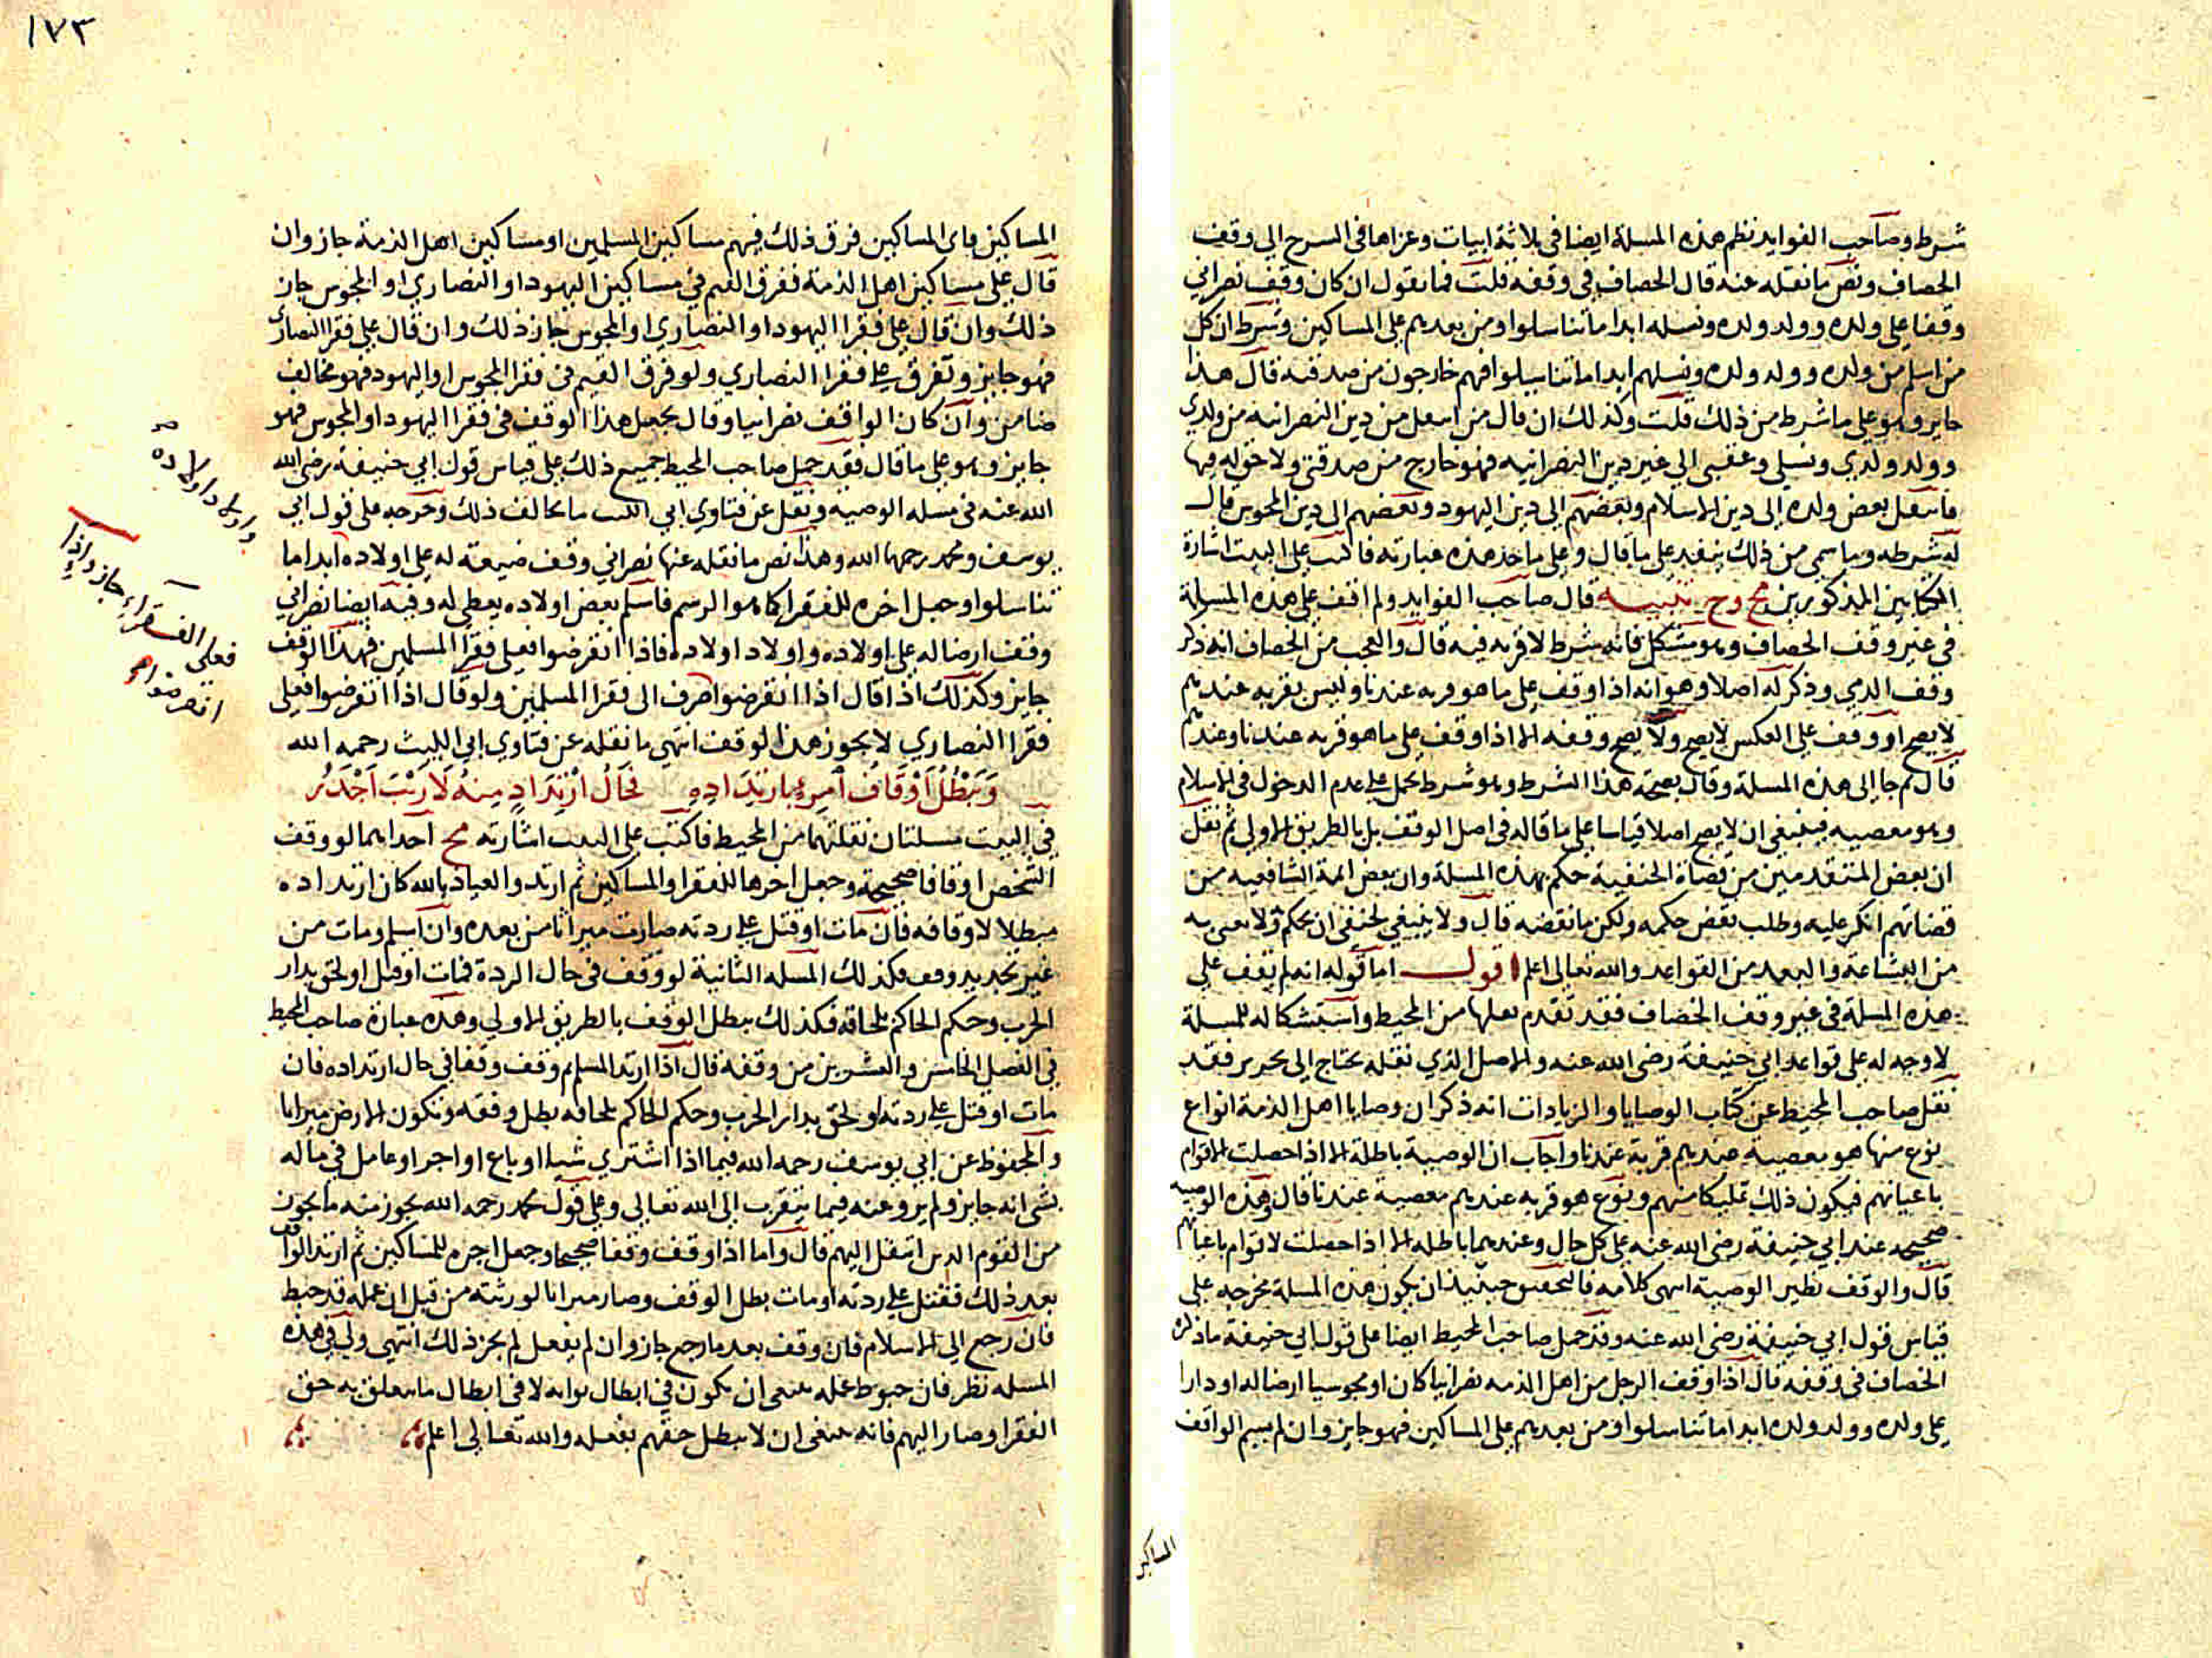 شرط وصاحب الفوايد نظم هذه المسلة ايضا في ثلاثة ابيات وعزاها في الشرح الى وقف
الخصاف ونص ما نقله عنه قال الخصاف في وقفه قلت فما تقول ان كان وقف نصراني
وقفا على ولده وولد ولده ونسله ابدا ما تناسلوا ومن بعدهم على المساكين وشرط ان كل
من اسلم من ولده وولد ولده ونسلهم ابدا ما تناسلوا فهم خارجون من صدقته قال هذا
جايز وهو على ما شرط من ذلك قلت وكذلك ان قال من انتقل من دين النصرانيه من ولدي
وولد ولدي ونسلي وعقبي الى غير دين النصرانيه فهو خارج من صدقتي ولا حق له فيها
فانتقل بعض ولده الى دين الاسلام وبعضهم الى دين اليهود وبعضهم الى دين المجوس قال
له شرطه وما سمى من ذلك ينفد على ما قال وعلى ماخذ هذه عبارته فاكتب على البيت اشارة
الكتابين المذكورين مح وخ تنبيه قال صاحب الفوايد ولم اقف على هذه المسلة
في غير وقف الخصاف وهو مشكل فانه شرط لا قربه فيه قال والعجب من الخصاف انه ذكر
وقف الذمي وذكر له اصلا وهو انه اذا وقف على ما هو قربه عندنا وليس بقربه عندهم
لا يصح او وقف على العكس لا يصح ولا يصح وقفه الا اذا وقف على ما هو قربه عندنا وعندهم
قال ثم جا الى هذه المسلة وقال بصحة هذا الشرط وهو شرط يحمل على عدم الدخول في الاسلام
وهو معصيه فينبغي ان لا يصح اصلا قياسا على ما قاله في اصل الوقف بل بالطريق الاولى ثم نقل
ان بعض المتقدمين من قضاة الحنفية حكم بهذه المسلة وان بعض ائمة الشافعيه من
قضاتهم انكر عليه وطلب نقض حكمه ولكن ما نقضه قال ولا ينبغي لحنفي ان يحكم ولا يفتى به
من البشاعة والبعد من القواعد والله تعالى اعلم اقول اما قوله انه لم يقف على
هذه المسلة في غير وقف الخصاف فقد تقدم نقلها من المحيط واستشكاله للمسلة
لا وجه له على قواعد ابي حنيفة رضى الله عنه والاصل الذي نقله يحتاج الى تحرير فقد
نقل صاحب المحيط عن كتاب الوصايا والزيادات انه ذكر ان وصايا اهل الذمة انواع
نوع منها هو معصية عندهم قربة عندنا واجاب ان الوصية باطلة الا اذا حصلت لاقوام
باعيانهم فيكون ذلك تمليكا منهم ونوع هو قربه عندهم معصية عندنا قال وهذه الوصيه
صحيحه عند ابي حنيفة رضى الله عنه على كل حال وعندهما باطله الا اذا حصلت لاقوام باعيانهم
قال والوقف نظير الوصية انتهى كلامه فالتحقيق حينيذ ان يكون هذه المسلة مخرجه على
قياس قول ابي حنيفة رضى الله عنه وقد حمل صاحب المحيط ايضا على قول ابي حنيفة ما ذكره
الخصاف في وقفه قال اذا وقف الرجل من اهل الذمه نصرانيا كان او مجوسيا ارضا له او دارا
على ولده وولد ولده ابدا ما تناسلوا ومن بعدهم على المساكين فهو جايز وان لم يسم الواقف
المساكين
١٧٣
المساكين فاى المساكين فرق ذلك فيهم مساكين المسلمين او مساكين اهل الذمة جاز وان
قال على مساكين اهل الذمة ففرق القيم في مساكين اليهود او النصارى او المجوس جاز
ذلك وان قال على فقرا اليهود او النصارى او المجوس جاز ذلك وان قال على فقرا النصارى
فهو جايز وتفرق على فقرا النصاري ولو فرق القيم في فقرا المجوس او اليهود فهو مخالف
ضامن وان كان الواقف نصرانيا وقال يجعل هذا الوقف في فقرا اليهود او المجوس فهو
جايز وهو على ما قال فقد حمل صاحب المحيط جميع ذلك على قياس قول ابي حنيفة رضى الله
الله عنه في مسله الوصية ونقل عن فتاوي ابي الليث ما يخالف ذلك وخرجه على قول ابي
يوسف ومحمد رحمهما الله وهذا نص ما نقله عنها نصراني وقف ضيعة له على اولاده ابدا ما
تناسلوا وجعل اخره للفقرا كما هو الرسم فاسلم بعض اولاده يعطى له وفيه ايضا نصراني
وقف ارضا له على اولاده واولاد اولاده فاذا انقرضوا فعلى فقرا المسلمين فهذا الوقف
جايز وكذلك اذا قال اذا انقرضوا صرف الى فقرا المسلمين ولو قال اذا انقرضوا فعلى
فقرا النصاري لا يجوز هذا الوقف انتهى ما نقله عن فتاوي ابي الليث رحمه الله
وَيَبْطُلُ اَوْقَافُ امْرِءٍ بارْتِدَادِهِ فَحَالُ ارْتِدَادٍ مِنهُ لَا رَيْبَ اَجْدَرُ
في البيت مسلتان نقلتهما من المحيط فاكتب على البيت اشارته مح احداهما لو وقف
الشخص اوقافا صحيحة وجعل اخرها للفقرا والمساكين ثم ارتد والعياذ بالله كان ارتداده
مبطلا لاوقافه فان مات او قتل على ردته صارت ميراثا من بعده وان اسلم ومات من
غير تجديد وقف فكذلك المسله الثانية لو وقف في حال الردة فمات او قتل او لحق بدار
الحرب وحكم الحاكم بلحاقه فكذلك يبطل الوقف بالطريق الاولى وهذه عبارة صاحب المحيط
في الفصل الخامس والعشرين من وقفه قال اذا ارتد المسلم ووقف وقفا في حال ارتداده فان
مات او قتل على ردته او لحق بدار الحرب وحكم الحاكم بلحاقه بطل وقفه وتكون الارض ميراثا
والمحفوظ عن ابي يوسف رحمه الله فيما اذا اشترى شيا او باع او اجر او عامل في ماله
بشى انه جايز ولم يرو عنه فيما يتقرب الى الله تعالى وعلى قول محمد رحمه الله يجوز منه ما يجوز
من القوم الذين انتقل اليهم قال واما اذا وقف وقفا صحيحا وجعل اخره للمساكين ثم ارتد الواقف
بعد ذلك فقتل على ردته او مات بطل الوقف وصار ميراثا لورثته من قبل ان عمله قد حبط
فان رجع الى الاسلام فان وقف بعد ما رجع جاز وان لم يفعل لم يجز ذلك انتهى ولى في هذه
المسله نظر فان حبوط عمله ينبغى ان يكون في ابطال ثوابه لا في ابطال ما يتعلق به حق
الفقرا وصار اليهم فانه ينبغى ان لا يبطل حقهم بفعله والله تعالى اعلم
واولاد اولاده
فعلى الفقراء جاز واذا
انقرضوا